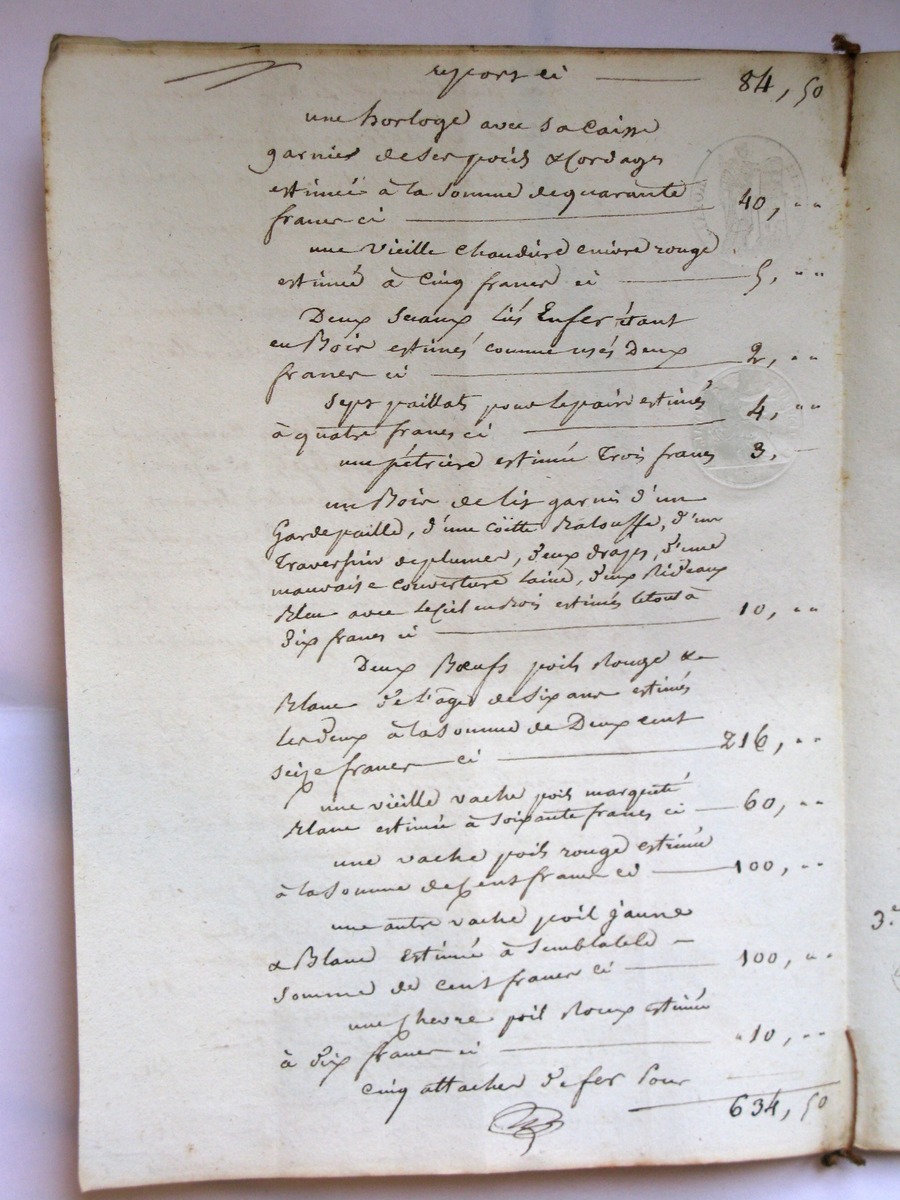 report ci 84, 50
une horloge avec sa caisse
garnies de ses poids & Cordages
estimée à la somme de quarante
francs ci 40, "
une vieille chaudière cuivre rouge
estimée à Cinq francs ci 5, "
Deux seaux liés En fer étant
en Bois estimés comme usés Deux
francs ci 2, "
sept paillats pour le pain estimés
à quatre francs ci 4, "
une pétrière estimée Trois francs 3, -
un Bois de lit garni d'un
Gardepaille, d'une coëtte Balouffe, d'un
Traversin de plumes, deux draps, d'une
mauvaise couverture laine, deux Rideaux
Bleu avec le Ciel en Bois estimés le tout à
Dix francs ci 10, "
Deux Bœufs poils Rouge &
Blanc de l'âge de Six ans estimés
les deux à la somme de Deux cent
seize francs ci 216, "
une vieille vache poils margenté
Blanc estimée à Soixante francs ci 60, "
une vache poils rouge estimée
à la Somme de Cent francs ci 100, "
une autre vache poil jaune
& Blanc Estimée à Semblable
somme de cent francs ci 100, "
une Chevre poil Roux estimée
à dix francs ci 10, "
cinq attaches de fer Pour
634, 50
3.e